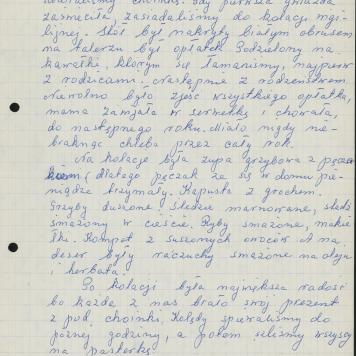 choinki. Gdy pierwsza gwiazda
zaświeciła, zasiadaliśmy do kolacji wigi-
lijnej. Stół był nakryty białym obrusem
na talerzu był opłatek. Podzielony na
kawałki, którym się łamaliśmy, najpierw
z rodzicami. Następnie z rodzeństwem.
Nie wolno było zjeść wszystkiego opłatka,
mama zawijała w serwetkę i chowała,
do następnego roku. Miało nigdy nie-
braknąć chleba przez cały rok.
Na kolację była zupa grzybowa z pęcza-
kiem, (dlatego pęczak że się w domu pie-
niądze trzymały. Kapusta z grochem.
Grzyby duszone, śledzie marnowane, śledź
smażony w cieście. Ryby smażone, makie-
łki. Kompot z suszonych owoców. A na
deser były racuchy smażone na oleju
i herbata.
Po kolacji była największa radość
bo każde z nas brało swój prezent
z pod choinki. Kolędy śpiewaliśmy do
późnej godziny, a potem szliśmy wszyscy
na pasterkę